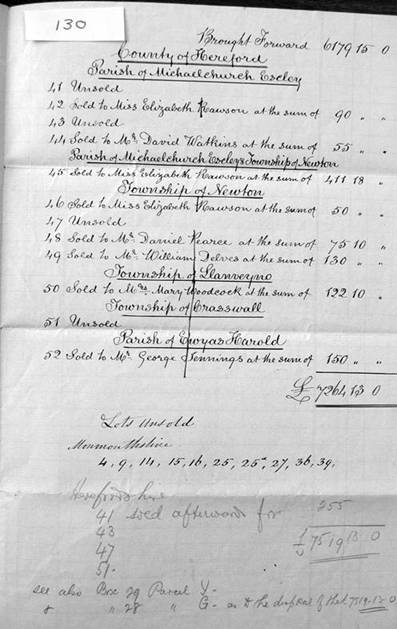 130
Brought Forward 6179 15 0
County of Hereford
Parish of Michaelchurch Escley
41 Unsold
42 Sold to Miss Elizabeth Rawson at the sum of 90 " "
43 Unsold
44 Sold to Mr. David Watkins at the sum of 55 " "
Parish of Michaelchurch Escley & Township of Newton
45 Sold to Miss Elizabeth Rawson at the sum of 411 18 "
Township of Newton
46 Sold to Miss Elizabeth Rawson at the sum of 50 " "
47 Unsold
48 Sold to Mr. Daniel Pearce at the sum of 75 10 "
49 Sold to Mr. William Delves at the sum of 130 " "
Township of Llanveyno
50 Sold to Mrs. Mary Woodcock at the sum of 122 10 "
Township of Crasswall
51 Unsold
Parish of Ewyas Harold
52 Sold to Mr. George Jennings at the sum of 150 " "
£ 7264 13 0
Lots Unsold
Monmouthshire
4, 9, 14, 15, 16, 25, 25a, 27, 36, 39,
Herefordshire
41 sold afterwards for 255
43
£ 7519 13 0
47
51
see also Box 29 Parcel Y-
& " 28 " G- as to the disposal of the £ 7519-13-0